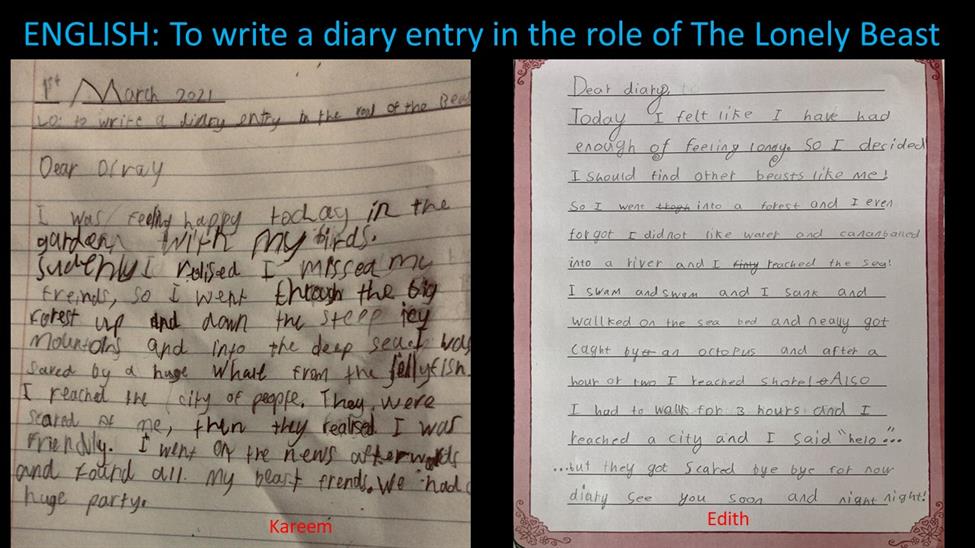 ENGLISH: To write a diary entry in the role of The Lonely Beast
1st March 2021
LO: to write a diary entry in the rool of the Beas
Dear Diray
I was feeling happy today in the
garden with my birds.
Suddenly I relised I missed my
freinds, so I went through the big
forest up and down the steep icy
mountons and into the deep sea I was
saved by a huge whale from the jellyfish.
I reached the city of people. They were
scared of me, then they realised I was
friendly. I went on the news afterwards
and found all my beast frends. We had a
huge party.
Kareem
Dear diary,
Today I felt like I have had
enough of feeling longy. So I decided
I should find other beasts like me!
So I went into a forest and I even
forgot I did not like water and cananballed
into a river and I reached the sea!
I swam and swam and I sank and
wallked on the sea bed and neally got
caght by an octopus and after a
hour or two I reached shore! Also
I had to walk for 3 hours and I
reached a city and I said "helo"...
...but they got scared bye bye for now
diary see you soon and night night!
Edith